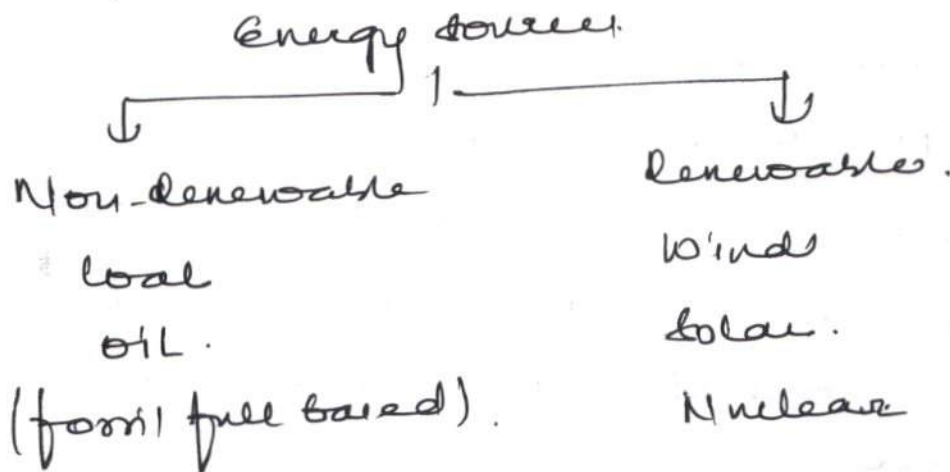 Energy sources.
Non-Renewable
Coal
OIL.
(fossil full based).
Renewable.
Wind
Solar.
Nuclear